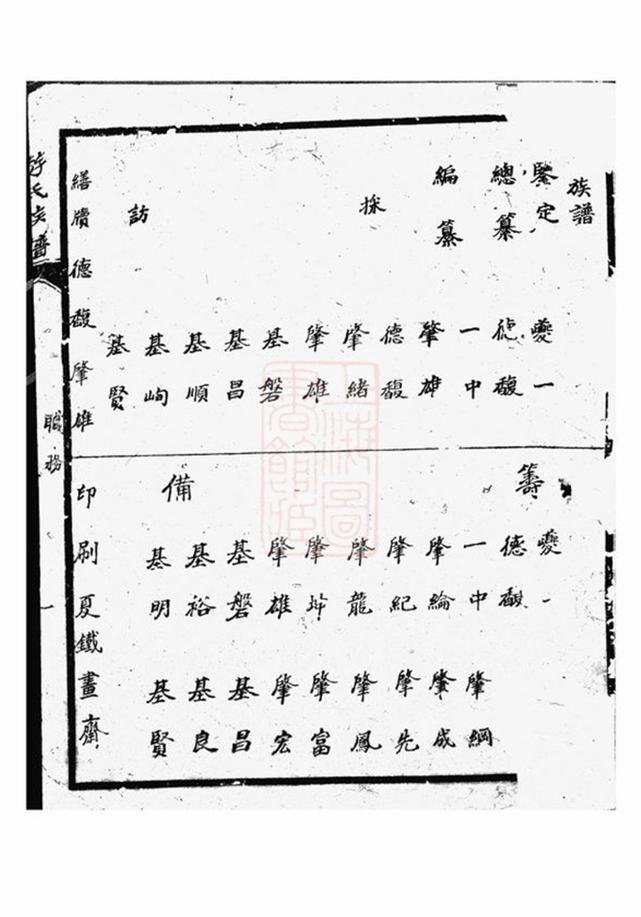 族譜
鑒定 夔一
總纂 德馥
一中
編纂 肇雄
德馥
採 肇緒
肇雄
基磐
基昌
基順
訪 基峋
基賢
繕牘 德馥 肇雄
籌 夔一
德馥
一中 肇綱
肇綸 肇成
肇紀 肇先
肇龍 肇鳳
肇 肇富
肇雄 肇宏
基磐 基昌
基裕 基良
備 基明 基賢
印刷 夏鐵畫齋
氏 譜
職務
一
上海圖書館藏